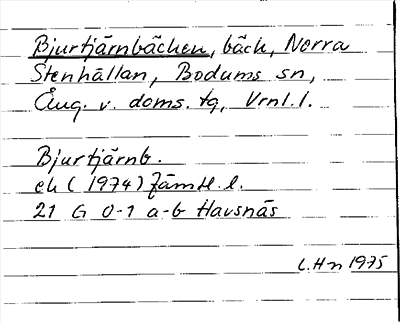 Bjurtjärnbäcken, bäck, Norra
Stenhällan, Bodums sn,
Ång. v. doms. tg, Vrnl. l.
Bjurtjärnb.
ek (1974) Jämtl. l.
21 G 0-1 a-b Havsnäs
L.Hn 1975